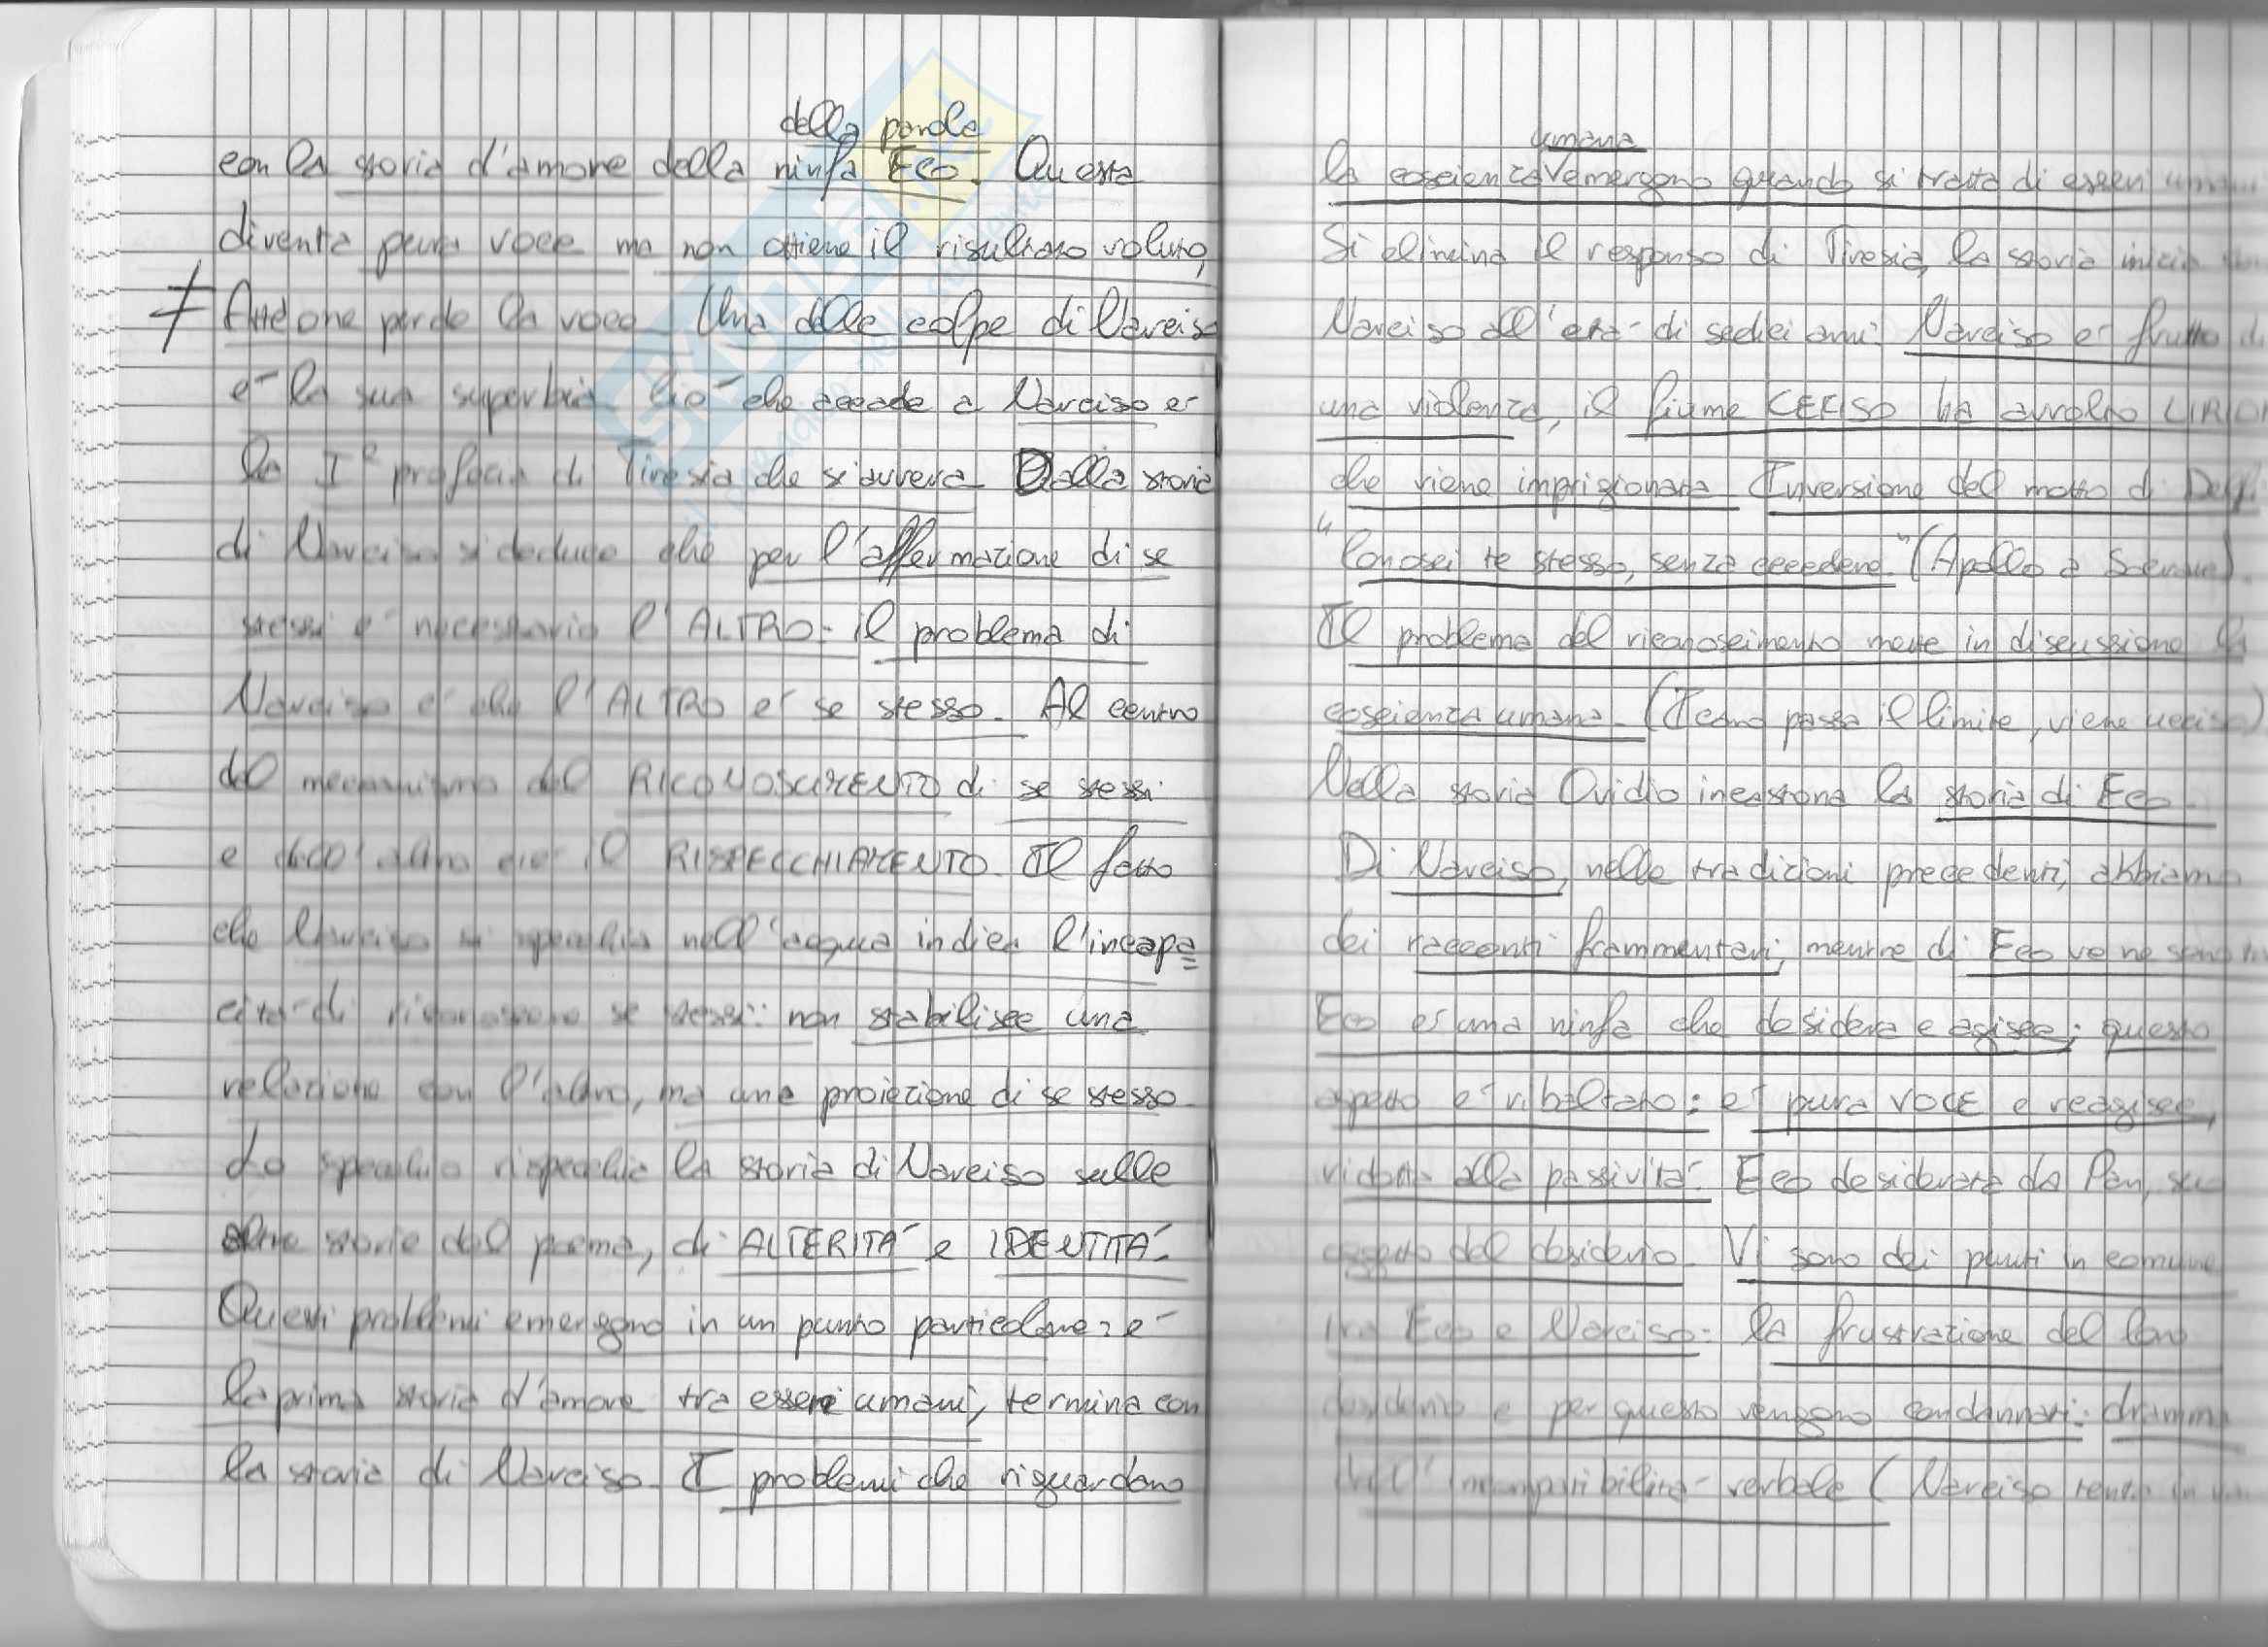 della parola
con la storia d'amore della ninfa Eco. Questa
diventa pura voce ma non ottiene il risultato voluto,
≠ Atteone perde la voce. Una delle colpe di Narciso
e' la sua superbia. Ciò che accade a Narciso e'
la Iª profezia di Tiresia che si avvera. Dalla storia
di Narciso si deduce che per l'affermazione di se
stessi e' necessario l'ALTRO: il problema di
Narciso e' che l'ALTRO e' se stesso. Al centro
del meccanismo del RICONOSCIMENTO di se stessi
e dell'altro c'è il RISPECCHIAMENTO. Il fatto
che Narciso si specchia nell'acqua indica l'incapa=
cita' di riconoscere se stessi: non stabilisce una
relazione con l'altro, ma una proiezione di se stesso.
Lo specchio rispecchia la storia di Narciso sulle
altre storie del poema, di ALTERITA' e IDENTITA'.
Questi problemi emergono in un punto particolare: e'
la prima storia d'amore tra esseri umani, termina con
la storia di Narciso. I problemi che riguardano
umana
la coscienza V emergono quando si tratta di esseri umani
Si elimina il responso di Tiresia, la storia inicia con
Narciso all'eta' di sedici anni. Narciso e' frutto di
una violenza, il fiume CEFISO ha avvolto
che viene imprigionata. Inversione del motto di Delfi:
"Conosci te stesso, senza eccedere." (Apollo a Socrate).
Il problema del riconoscimento mette in discussione la
coscienza umana. (passa il limite, viene ucciso).
Nella storia Ovidio incastona la storia di Eco.
Di Narciso, nelle tradizioni precedenti, abbiamo
dei racconti frammentari, mentre di Eco ve ne sono
Eco e' una ninfa che desidera e agisce; questo
aspetto e' ribaltato: e' pura VOCE e reagisce,
ridotta alla passivita'. Eco desiderata da Pan,
oggetto del desiderio. Vi sono dei punti in comune
tra Eco e Narciso: la frustrazione del loro
desiderio e per questo vengono condannati: dramma
dell'incompatibilita' verbale (Narciso tenta